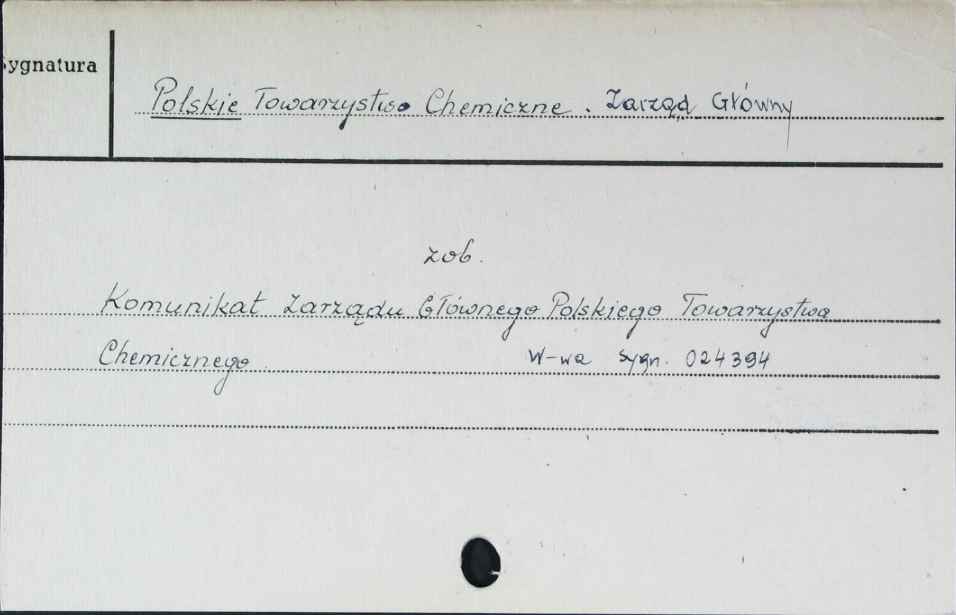 Sygnatura
Polskie Towarzystwo Chemiczne. Zarząd Główny
zob.
Komunikat Zarządu Głównego Polskiego Towarzystwa
Chemicznego. W-wa sygn. 024394